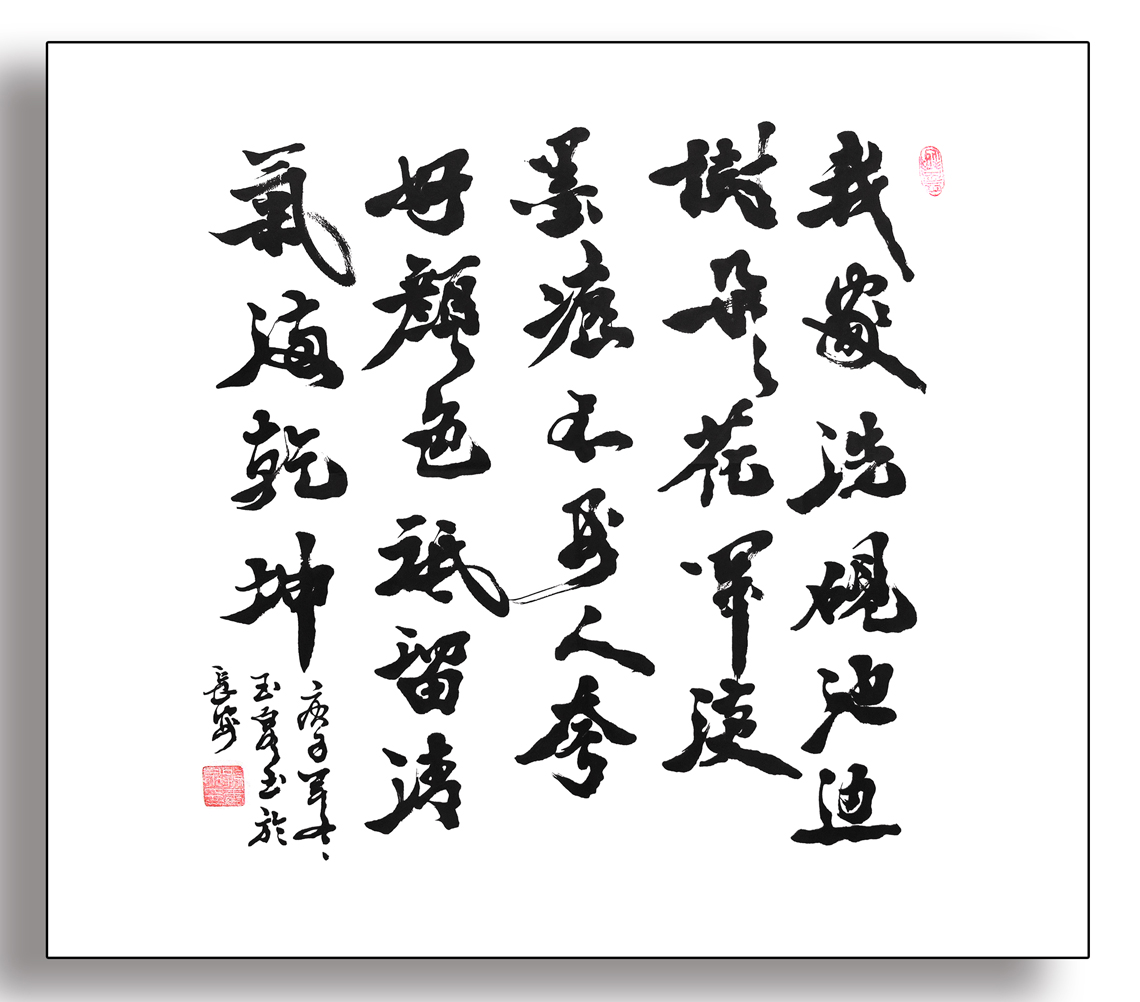 我家洗硯池邊
樹朵々花開淡
墨痕不要人夸
好顏色祗留清
氣滿乾坤
庚子年冬
玉書於
長安